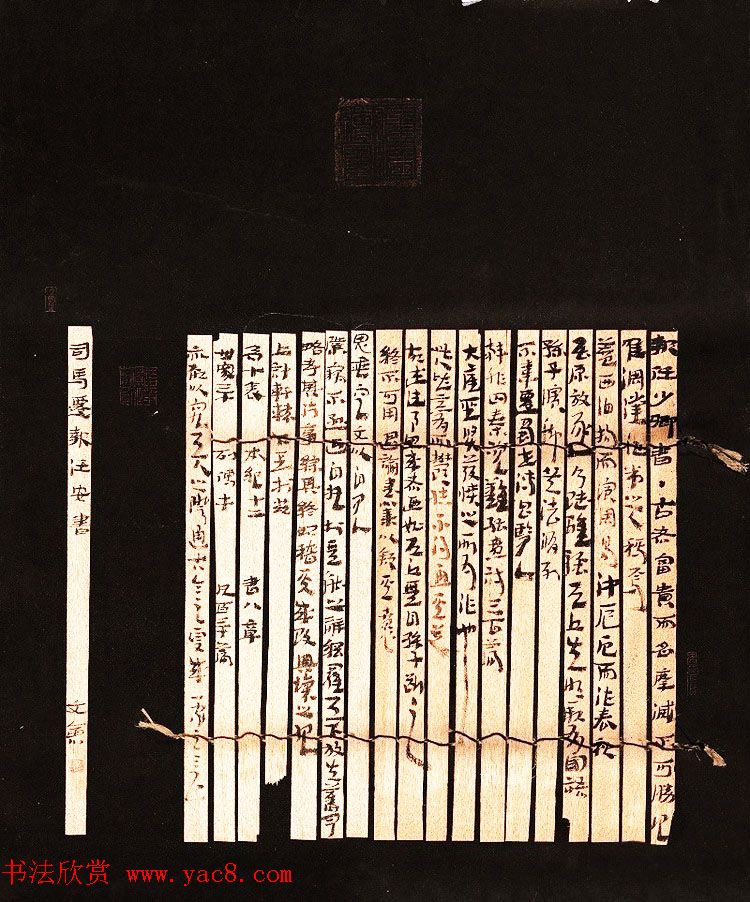 報任少卿書·古者富貴而名摩滅不可勝記
唯倜儻非常之人稱焉
蓋西伯拘而演周易 仲尼厄而作春秋
屈原放逐乃賦離騷左丘失明厥有國語
孫子臏腳兵法修列
不韋遷蜀世傳呂覽
韓非囚秦說難孤憤詩三百篇
大底聖賢發憤之所爲作也
此人皆意有所鬱結不得通其道
故述往事思來者乃如左丘無目孫子斷足
終不可用退論書策以舒其憤
思垂空文以自見
僕竊不遜近自託於無能之辭網羅天下放失舊聞
略考其行事綜其終始稽其成敗興壞之紀
上計軒轅下至于茲
爲十表 本紀十二 書八章
世家三十 列傳七十 凡百三十篇
亦欲以究天人之際通古今之變成一家之言
司馬遷報任安書 文
书法欣赏 www.yac8.com